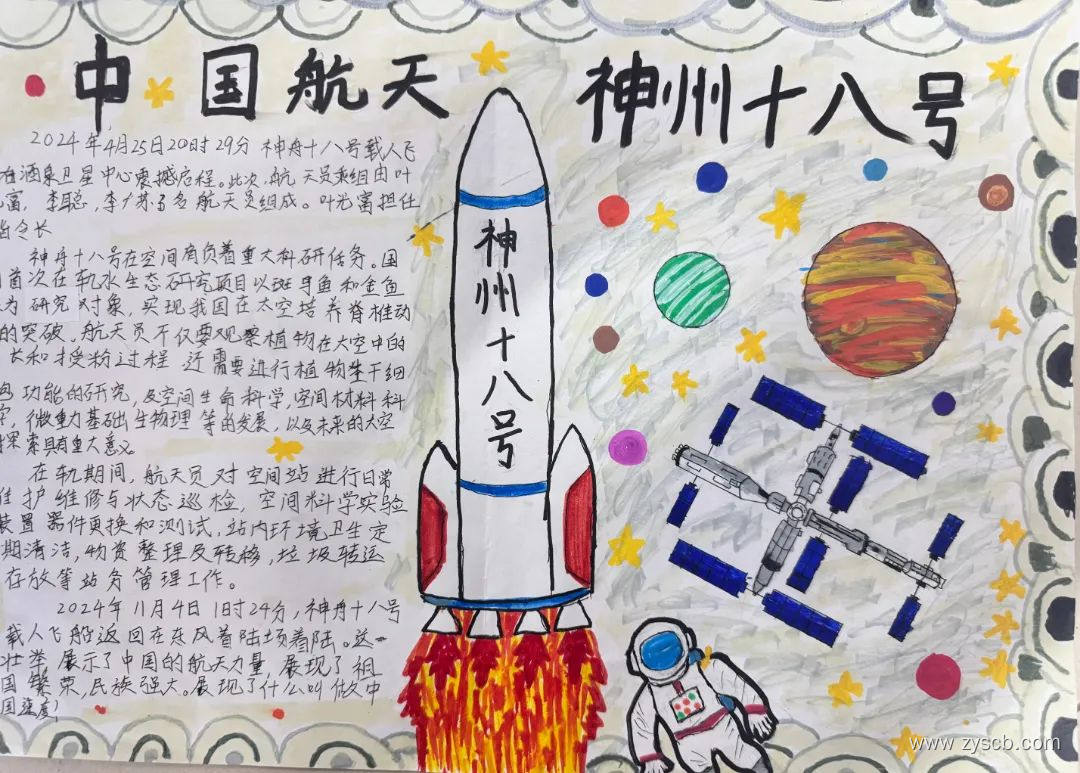 中国航天
神州十八号
2024年4月25日20时29分 神舟十八号载人飞
在酒泉卫星中心震撼启程。此次,航天员乘组由叶
富,李聪,李广苏3名航天员组成。叶光富担任
指令长
神舟十八号在空间肩负着重大科研任务。国
首次在轨水生态研究项目以斑马鱼和金鱼
为研究对象,实现我国在太空培养脊椎动
的突破。航天员不仅要观察植物在太空中的
长和授粉过程 还需要进行植物茎干细
功能的研究,及空间生命科学,空间材料科
学,微重力基础生物理等的发展,以及未来的太空
探索具有重大意义
在轨期间,航天员对空间站进行日常
维护维修与状态巡检,空间科学实验
装置器件更换和测试,站内环境卫生定
期清洁,物资整理及转移,垃圾转运
存放等站务管理工作。
2024年11月4日1时24分,神舟十八号
载人飞船返回在东风着陆场着陆。这一
壮举,展示了中国的航天力量,展现了祖
国繁荣,民族强大。展现了什么叫做中
国速度!
神州十八号
www.zyscb.com